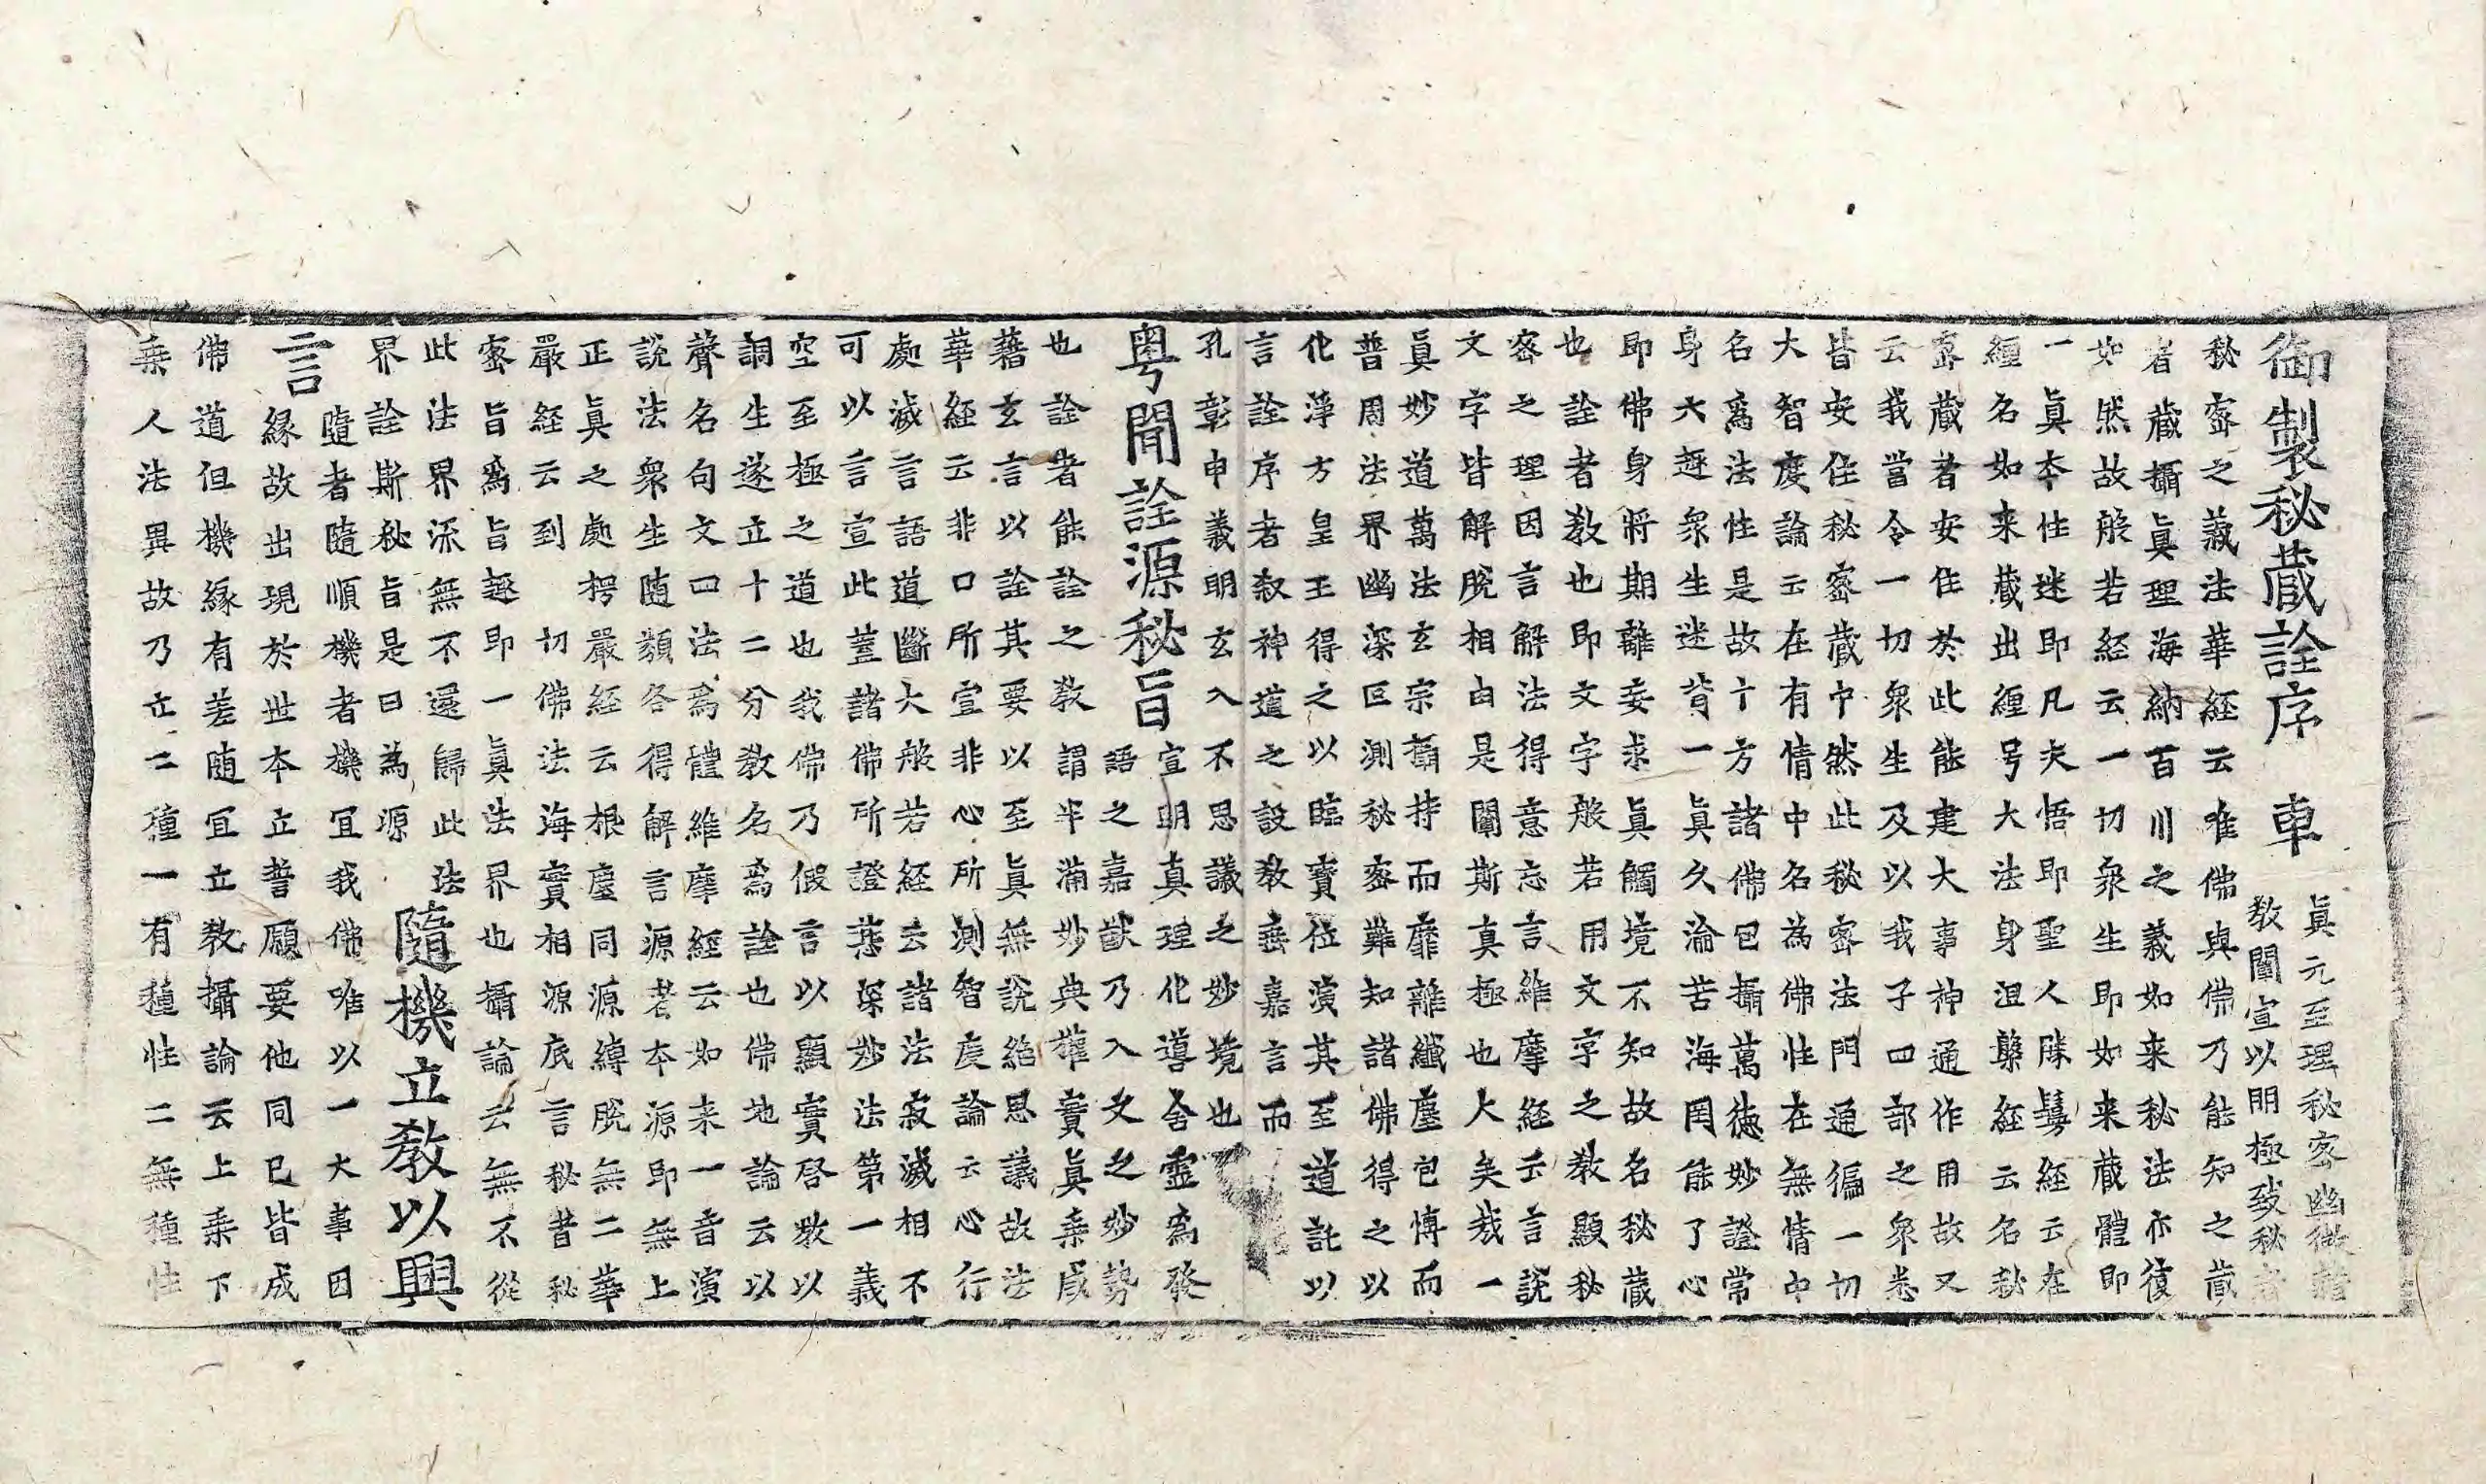 御製秘蔵詮序　車
眞元至理秘密幽微藉
教闡宣以明極致秘者
秘密之義法華経云唯佛與佛乃能知之蔵
者蔵攝眞理海納百川之義如来秘法亦復
如然故般若経云一切衆生即如来蔵體即
一眞本性迷即凡夫悟即聖人勝鬘経云在
纒名如来蔵出纒号大法身涅槃経云名秘
密蔵者安住於此能建大事神通作用故又
云我當令一切衆生及以我子四部之衆悉
皆安住秘密蔵中然此秘密法門通徧一切
大智度論云在有情中名為佛性在無情中
名爲法性是故十方諸佛包攝萬德妙證常
身大趣衆生迷背一眞久淪苦海罔能了心
即佛身將期離妄求眞觸境不知故名秘蔵
也詮者教也即文字般若用文字之教顯秘
密之理因言解法得意忘言維摩経云言說
文字皆解脫相由是闡斯真極也大矣哉一
眞妙道萬法玄宗攝持而靡離纖塵包博而
普周法界幽深叵測秘密難知諸佛得之以
化淨方皇王得之以臨寶位演其至道託以
言詮序者叙神道之設教垂嘉言而
孔彰申義明玄入不思議之妙境也
粤聞詮源秘旨
宣明真理化導含靈爲發
語之嘉猷乃入文之妙勢
也詮者能詮之教謂半滿妙典權實眞乗咸
藉玄言以詮其要以至眞無說絶思議故法
華経云非口所宣非心所測智度論云心行
處滅言語道斷大般若経云諸法寂滅相不
可以言宣此蓋諸佛所證甚深妙法第一義
空至極之道也我佛乃假言以顯實啓教以
詞生遂立十二分教名爲詮也佛地論云以
聲名句文四法爲體維摩經云如来一音演
說法衆生随類各得解言源者本源即無上
正眞之處楞嚴經云根塵同源縛脫無二華
嚴経云到　切佛法海實相源底言秘旨秘
密旨爲旨趣即一眞法界也攝論云無不從
此法界流無不還歸此法
界詮斯秘旨是曰為源
隨機立教以興
言
隨者隨順機者機宜我佛唯以一大事因
緣故出現於世本立誓願要他同已皆成
佛道但機緣有差随宜立教攝論云上乗下
乗人法異故乃立二種一有種性二無種性